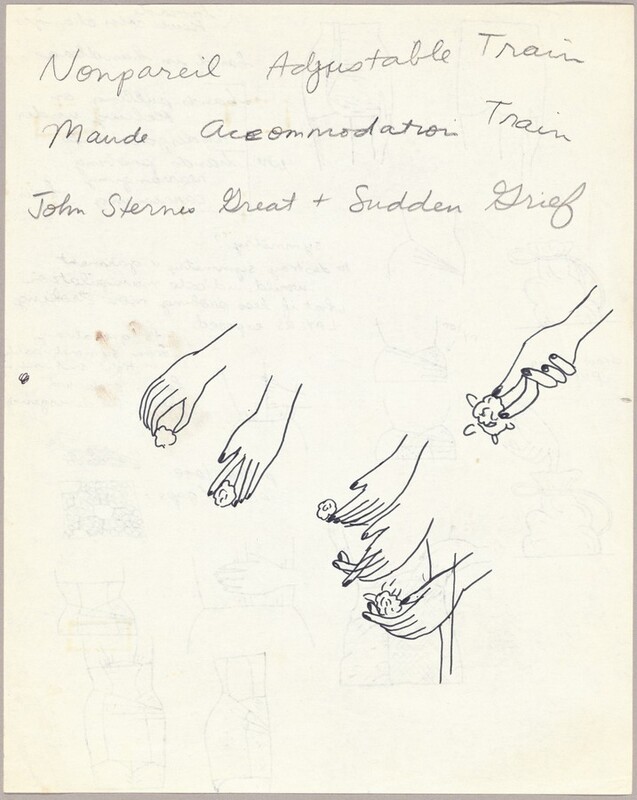 Nonpareil Adjustable Train
Maude Accommodation Train
John Sternes Great + Sudden Grief